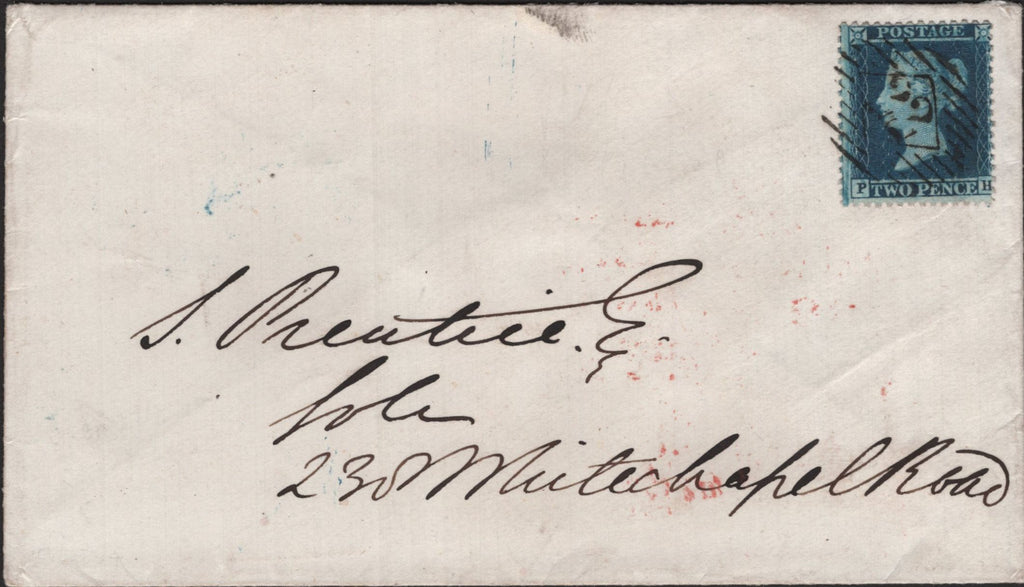 POSTAGE
P TWO PENCE H
S. Prentice. E
Solr
230 Whitechapel Road